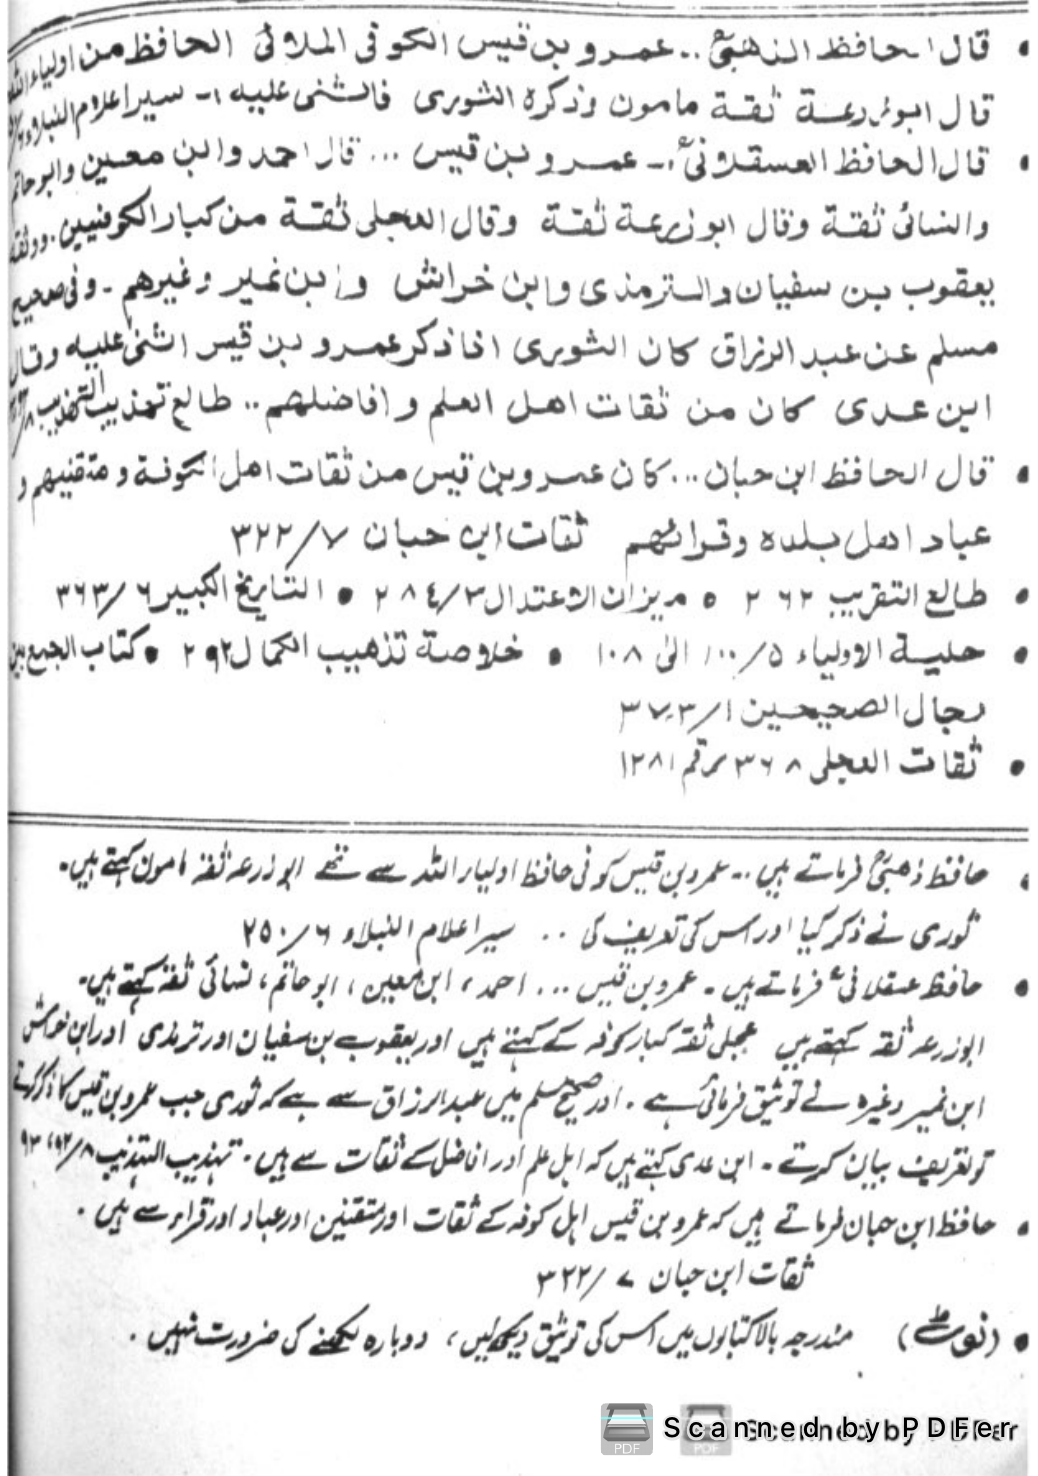 • قال الحافظ الذهبیؒ .. عمرو بن قیس الکوفی الملائی الحافظ من اولیاء اللہ
قال ابو زرعة ثقة مامون وذکره الثوری فاثنی علیه ۱ـ سیر اعلام النبلاء
• قال الحافظ العسقلانیؒ ۔ عمرو بن قیس ... قال احمد وابن معین وابو حاتم
والنسائی ثقة وقال ابو زرعة ثقة وقال العجلی ثقة من کبار الکوفیین. ووثقه
یعقوب بن سفیان والترمذی وابن خراش وابن نمیر وغیرهم ۔ وفی صحیح
مسلم عن عبد الرزاق کان الثوری اذا ذکر عمرو بن قیس اثنی علیه وقال
ابن عدی کان من ثقات اهل العلم وافاضلهم .. طالع تهذیب التهذیب
• قال الحافظ ابن حبان ... کان عمرو بن قیس من ثقات اهل الکوفة ومتقنیهم و
عباد اهل بلده وقرائهم ثقات ابن حبان ۳۲۲/۷
• طالع التقریب ۲۶۲ • میزان الاعتدال ۲۸٤/۳ • التاریخ الکبیر ۳۶۳/۶
• حلیة الاولیاء ۱۰۰/۵ الی ۱۰۸ • خلاصة تذهیب الکمال ۲۹۲ • کتاب الجمع بین
رجال الصحیحین ۳۷۳/۱
• ثقات العجلی ۳۶۸ رقم ۱۲۸۱
• حافظ ذھبیؒ فرماتے ہیں ۔۔ عمرو بن قیس کوفی حافظ اولیاء اللہ سے تھے ابو زرعہ ثقہ مامون کہتے ہیں۔
ثوری نے ذکر کیا اور اس کی تعریف کی .. سیر اعلام النبلاء ۲۵۰/۶
• حافظ عسقلانیؒ فرماتے ہیں ۔ عمرو بن قیس ... احمد، ابن معین، ابو حاتم، نسائی ثقہ کہتے ہیں۔
ابو زرعہ ثقہ کہتے ہیں عجلی ثقہ کبار کوفہ کے کہتے ہیں اور یعقوب بن سفیان اور ترمذی اور ابن خراش
ابن نمیر وغیرہ نے توثیق فرمائی ہے ۔ اور صحیح مسلم میں عبدالرزاق سے ہے کہ ثوری جب عمرو بن قیس کا ذکر کرتے
تو تعریف بیان کرتے ۔ ابن عدی کہتے ہیں کہ اہل علم اور افاضل کے ثقات سے ہیں ۔ تہذیب التہذیب ۹۲/۸، ۹۳
• حافظ ابن حبان فرماتے ہیں کہ عمرو بن قیس اہل کوفہ کے ثقات اور متقنین اور عباد اور قراء سے ہیں ۔
ثقات ابن حبان ۳۲۲/۷
• (نوٹ) مندرجہ بالا کتابوں میں اس کی توثیق دیکھ لیں، دوبارہ لکھنے کی ضرورت نہیں ۔
Scanned by PDFer
Scanned by PDFer